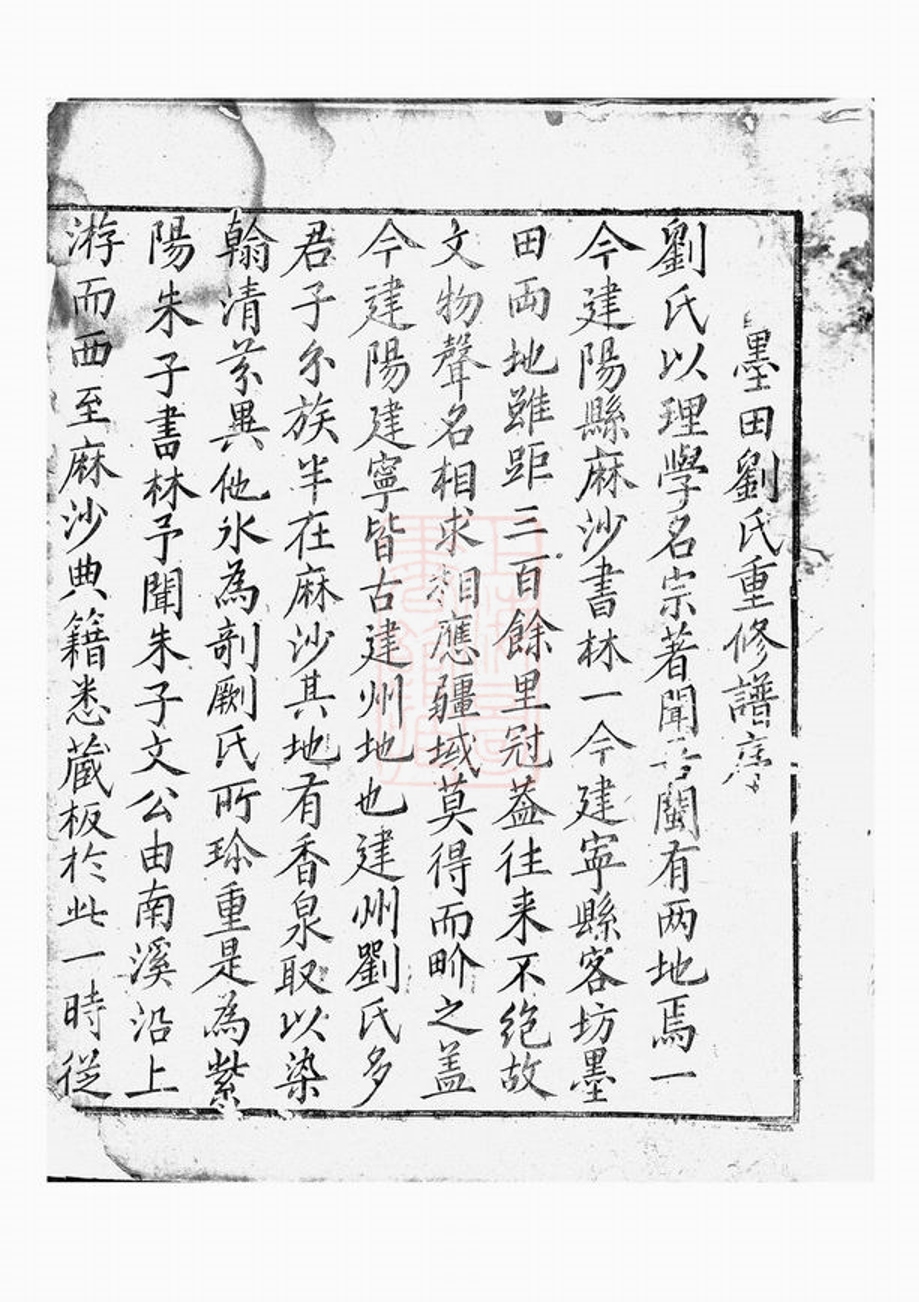 墨田劉氏重修譜序
劉氏以理學名宗著聞吾閩有两地焉一
今建陽縣麻沙書林一今建寧縣客坊墨
田両地雖距三百餘里冠盖往来不绝故
文物聲名相求相應疆域莫得而畍之盖
今建陽建寧皆古建州地也建州劉氏多
君子尓族半在麻沙其地有香泉取以染
翰清芬異他水為剞劂氏所珎重是為紫
陽朱子書林予聞朱子文公由南溪沿上
游而西至麻沙典籍悉藏板於此一時從